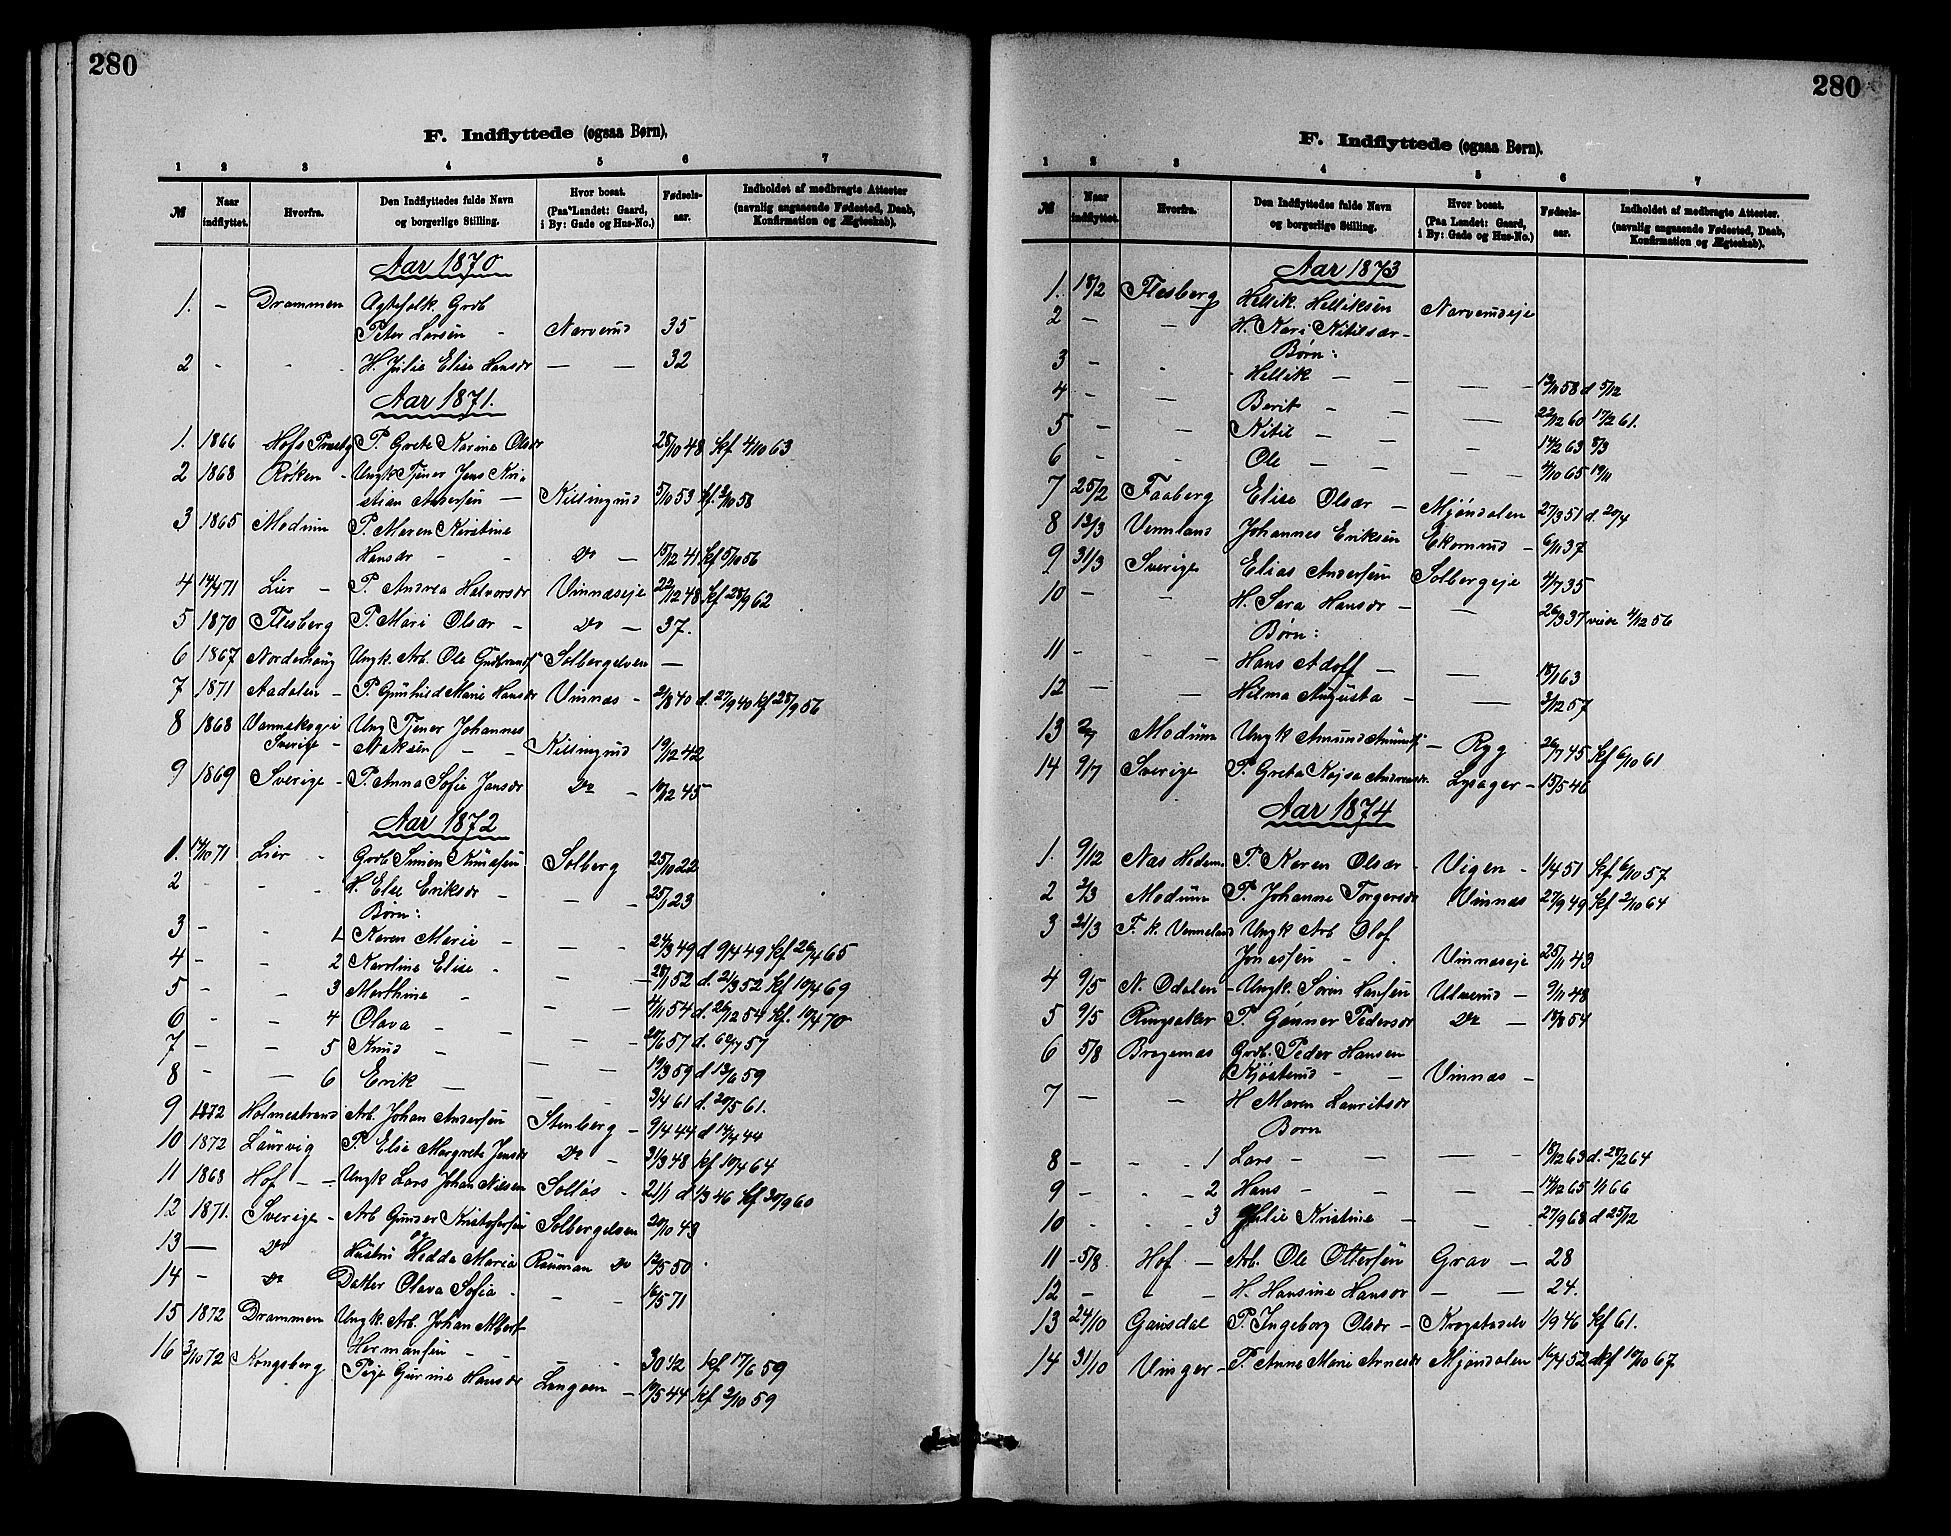 280
F. Indflyttede (ogsaa Børn).
1 2 3 4 5 6 7
№ Naar indflyttet. Hvorfra. Den Indflyttedes fulde Navn og borgerlige Stilling. Hvor bosat. (Paa Landet: Gaard, i By: Gade og Hus-No.) Fødselsaar. Indholdet af medbragte Attester (navnlig angaaende Fødested, Daab, Konfirmation og Ægteskab).
Aar 1870
1. - Drammen Ægtefolk Grdb
Peter Larsen - Narverud 35
2 - - - H. Julie Elise Hansdr — — 32
Aar 1871.
1. 1866 Hofs Præstg P. Grete Karine Olsdr 28/10 48 kf 4/10 63
2 1868 Røken - Ungk Tjener Jens Kri
stian Andersen — Killingrud 5/10 53 kf. 2/10 58
3 1865 Modum P. Maren Kristine
Hansdr - - Do — 15/12 41 kf 5/10 56
4 14/4 71 Lier - P. Andrea Halvorsdr Vinnæseje 22/12 48 kf 28/9 62
5 1870 Flesberg P. Mari Olsdr - Do — 37.
6 1867 Norderhoug Ungk. Arb. Ole Gudbrands Solbergelven —
7 1871 Aadalen - P. Gunhild Marie Hansdr Vinnæs - 2/8 40 d. 27/9 40 kf 28/9 56
8 1868 Vermskogie Ung Tjener Johannes
Sverige - Naksen - - Killingrud 19/12 42
9 1869 Sverige - P. Anna Sofie Jansdr Do - 10/12 45
Aar 1872
1. 14/10 71 Lier - Grdb Simen Knudsen Solberg 25/10 22
2 - - - H. Else Eriksdr - - - 25/1 23
Børn:
3 - - 1 Karen Marie - - - 24/3 49 d 9/4 49 kf 26/4 65
4 - - 2 Karoline Elise - - - 28/1 52 d. 21/3 52 kf 10/4 69
5 - - 3 Marthine - - - 4/11 54 d. 26/12 54 kf. 10/4 70
6 - - 4 Olava - - - 20/6 57 d. 60/7 57
7 - - 5 Knud - - - 19/3 59 d 13/6 59
8 - — 6 Erik — - - 3/4 61 d. 20/5 61.
9 1872 Holmestrand Arb. Johan Andersen Stenberg - 9/4 44 d 14/4 44
10 1872 Laurvig P. Elise Margrete Jensdr Do - 31/3 48 kf 10/4 64
11 1868 Hof - - Ungk Lars Johan Nilsen Solløs - 21/1 d 1/3 46 kf 30/9 60
12 1871. Sverige - Arb Gunder Kristofersen Solbergelven 20/10 43
13 — Do Hustru Hedda Maria Rauman Do 10/5 50
14 - Do Datter Olava Sofia - - - 16/5 71
15 1872 Drammen Ungk. Arb. Johan Albert
Hermansen - - - - 30 1/2 kf 17/6 59
16 3/10 72 Kongsberg Pige Gurine Hansdr Langøen - 10/5 44 kf 2/10 59
280
F. Indflyttede (ogsaa Børn).
1 2 3 4 5 6 7
№ Naar indflyttet. Hvorfra. Den Indflyttedes fulde Navn og borgerlige Stilling. Hvor bosat. (Paa Landet: Gaard, i By: Gade og Hus-No.) Fødselsaar. Indholdet af medbragte Attester. (navnlig angaaende Fødested, Daab, Konfirmation og Ægteskab).
Aar 1873
1. 18/2 Flesberg Hellik Helliksen Narverudeje
2 - - H. Kari Nitilsdr -
Børn:
3 - - - Hellik - - — 12/11 58 d 5/12
4 - - Berit - - — 22/12 60 17/2 61.
5 - - Nitil - - — 14/2 63 8/3
6 - - Ole - - — 4/10 65 19/11
7 25/2 Faaberg Elise Olsdr - Mjøndalen 27/3 51 d. 20/4
8 12/3 Vermland Johannes Eriksen Ekornrud - 6/11 37
9 31/3 Sverige Elias Andersen Solbergeje 4/7 35
10 - - H. Sara Hansdr - — 26/3 37 viede 4/12 56
Børn:
11 - - Hans Adolf - — 18/1 63
12 - - Hilma Augusta - — 3/12 57
13 2/7 Modum Ungk Amund Amunds - Ryg 26/7 45 kf 6/10 61
14 9/7 Sverige P. Greta Kajsa Andreasdr. Lysager - 15/5 46
Aar 1874
1. 9/12 Næs Hedem. P. Karen Olsdr - Vigen - 1/4 51 kf 6/10 57
2 2/3 Modum P. Johanne Torgersdr Vinnæs 27/9 49 kf 2/10 64
3 21/3 F. k. Vermeland Ungk Arb Olof
Jonassen - - Vinnæseje 25/11 43
4 9/5 N. Odalen - Ungk. Søren Hansen Ulverud - 9/11 48
5 9/5 Ringsaker P. Gunner Pedersdr Do — 18/8 54
6 5/8 Bragernæs Grdb. Peder Hansen
Kjøsterud - - Vinnæs -
7 - - H Maren Lauritsdr
Børn
8 - - - 1 Lars - - — - 18/12 63 d. 28/2 64
9 - - - 2 Hans - - — - 14/12 65 1/1 66
10 - - 3 Julie Kristine - - - 27/9 68 d 25/12
11 - 5/8 Hof - Arb. Ole Ottersen Grav - 28
12 - - - H. Hansine Hansdr - - 24.
13 24/10 Gausdal P. Ingeborg Olsdr - Krogstadelv 1/9 46 kf 61.
14 31/10 Vinger - P. Anne Marie Arnesdr Mjøndalen 16/4 52 kf 10/10 67